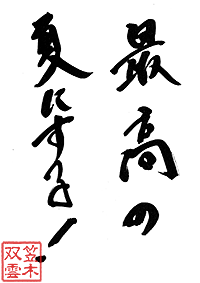 最高の
夏にする!
笠木
双雲